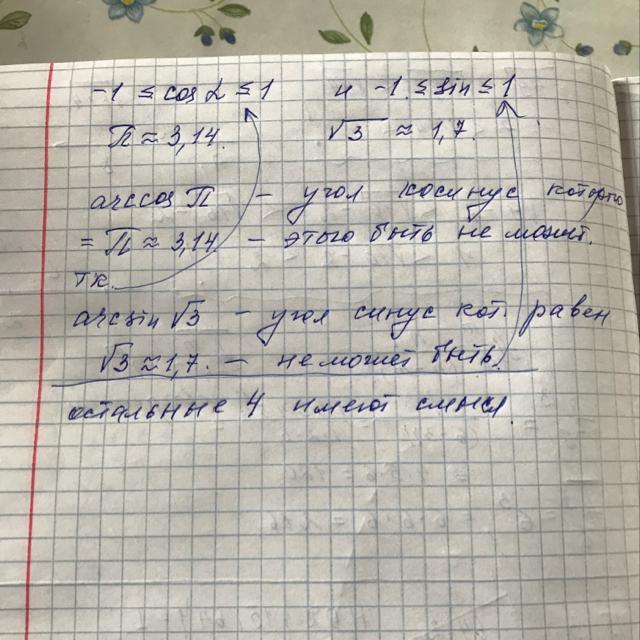 -1 ≤ cos α ≤ 1 и -1 ≤ sin ≤ 1
П ≈ 3,14. √3 ≈ 1,7.
arccos П - угол косинус которого
= П ≈ 3,14 - этого быть не может.
т.к.
arcsin √3 - угол синус кот. равен
√3 ≈ 1,7. - не может быть.
остальные 4 имеют смысл.